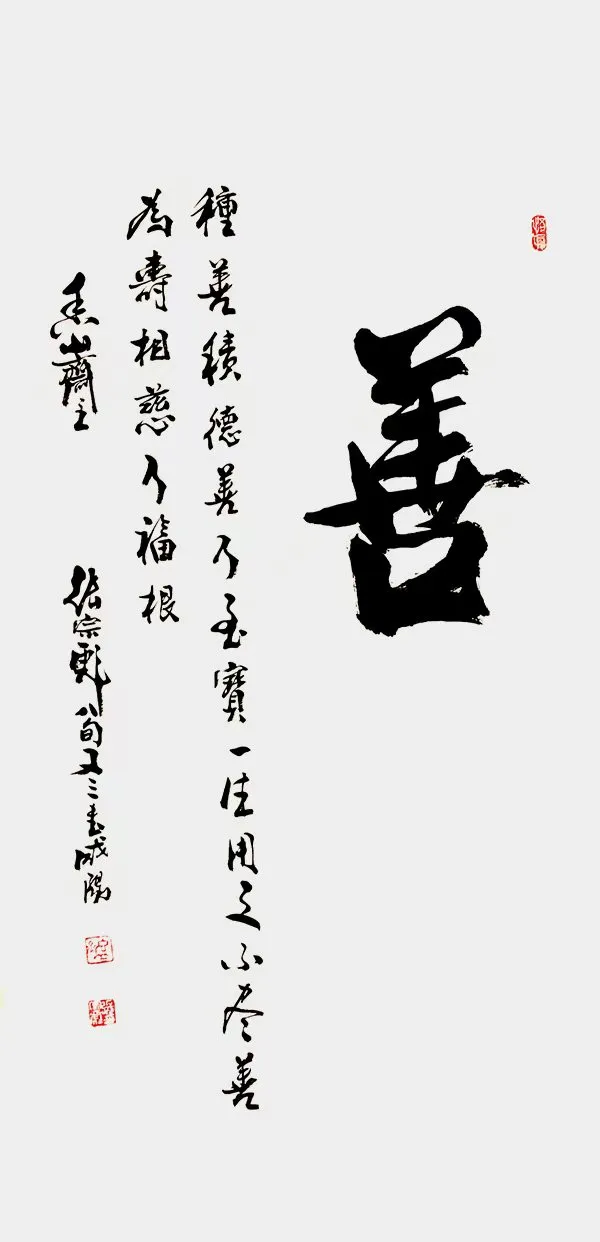 善
種善積德善乃至寶一生用之不尽善
為壽相慈乃福根
香山齋主
張宗彪八旬又三書咸陽